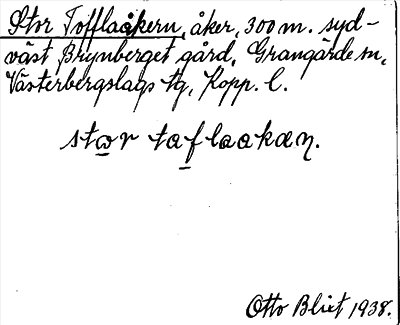 Stor Tofflaåkern, åker, 300 m. syd-
väst Brynberget gård, Grangärde sn,
Västerbergslags tg, Kopp. l.
stor taflaakan.
Otto Blixt 1938.